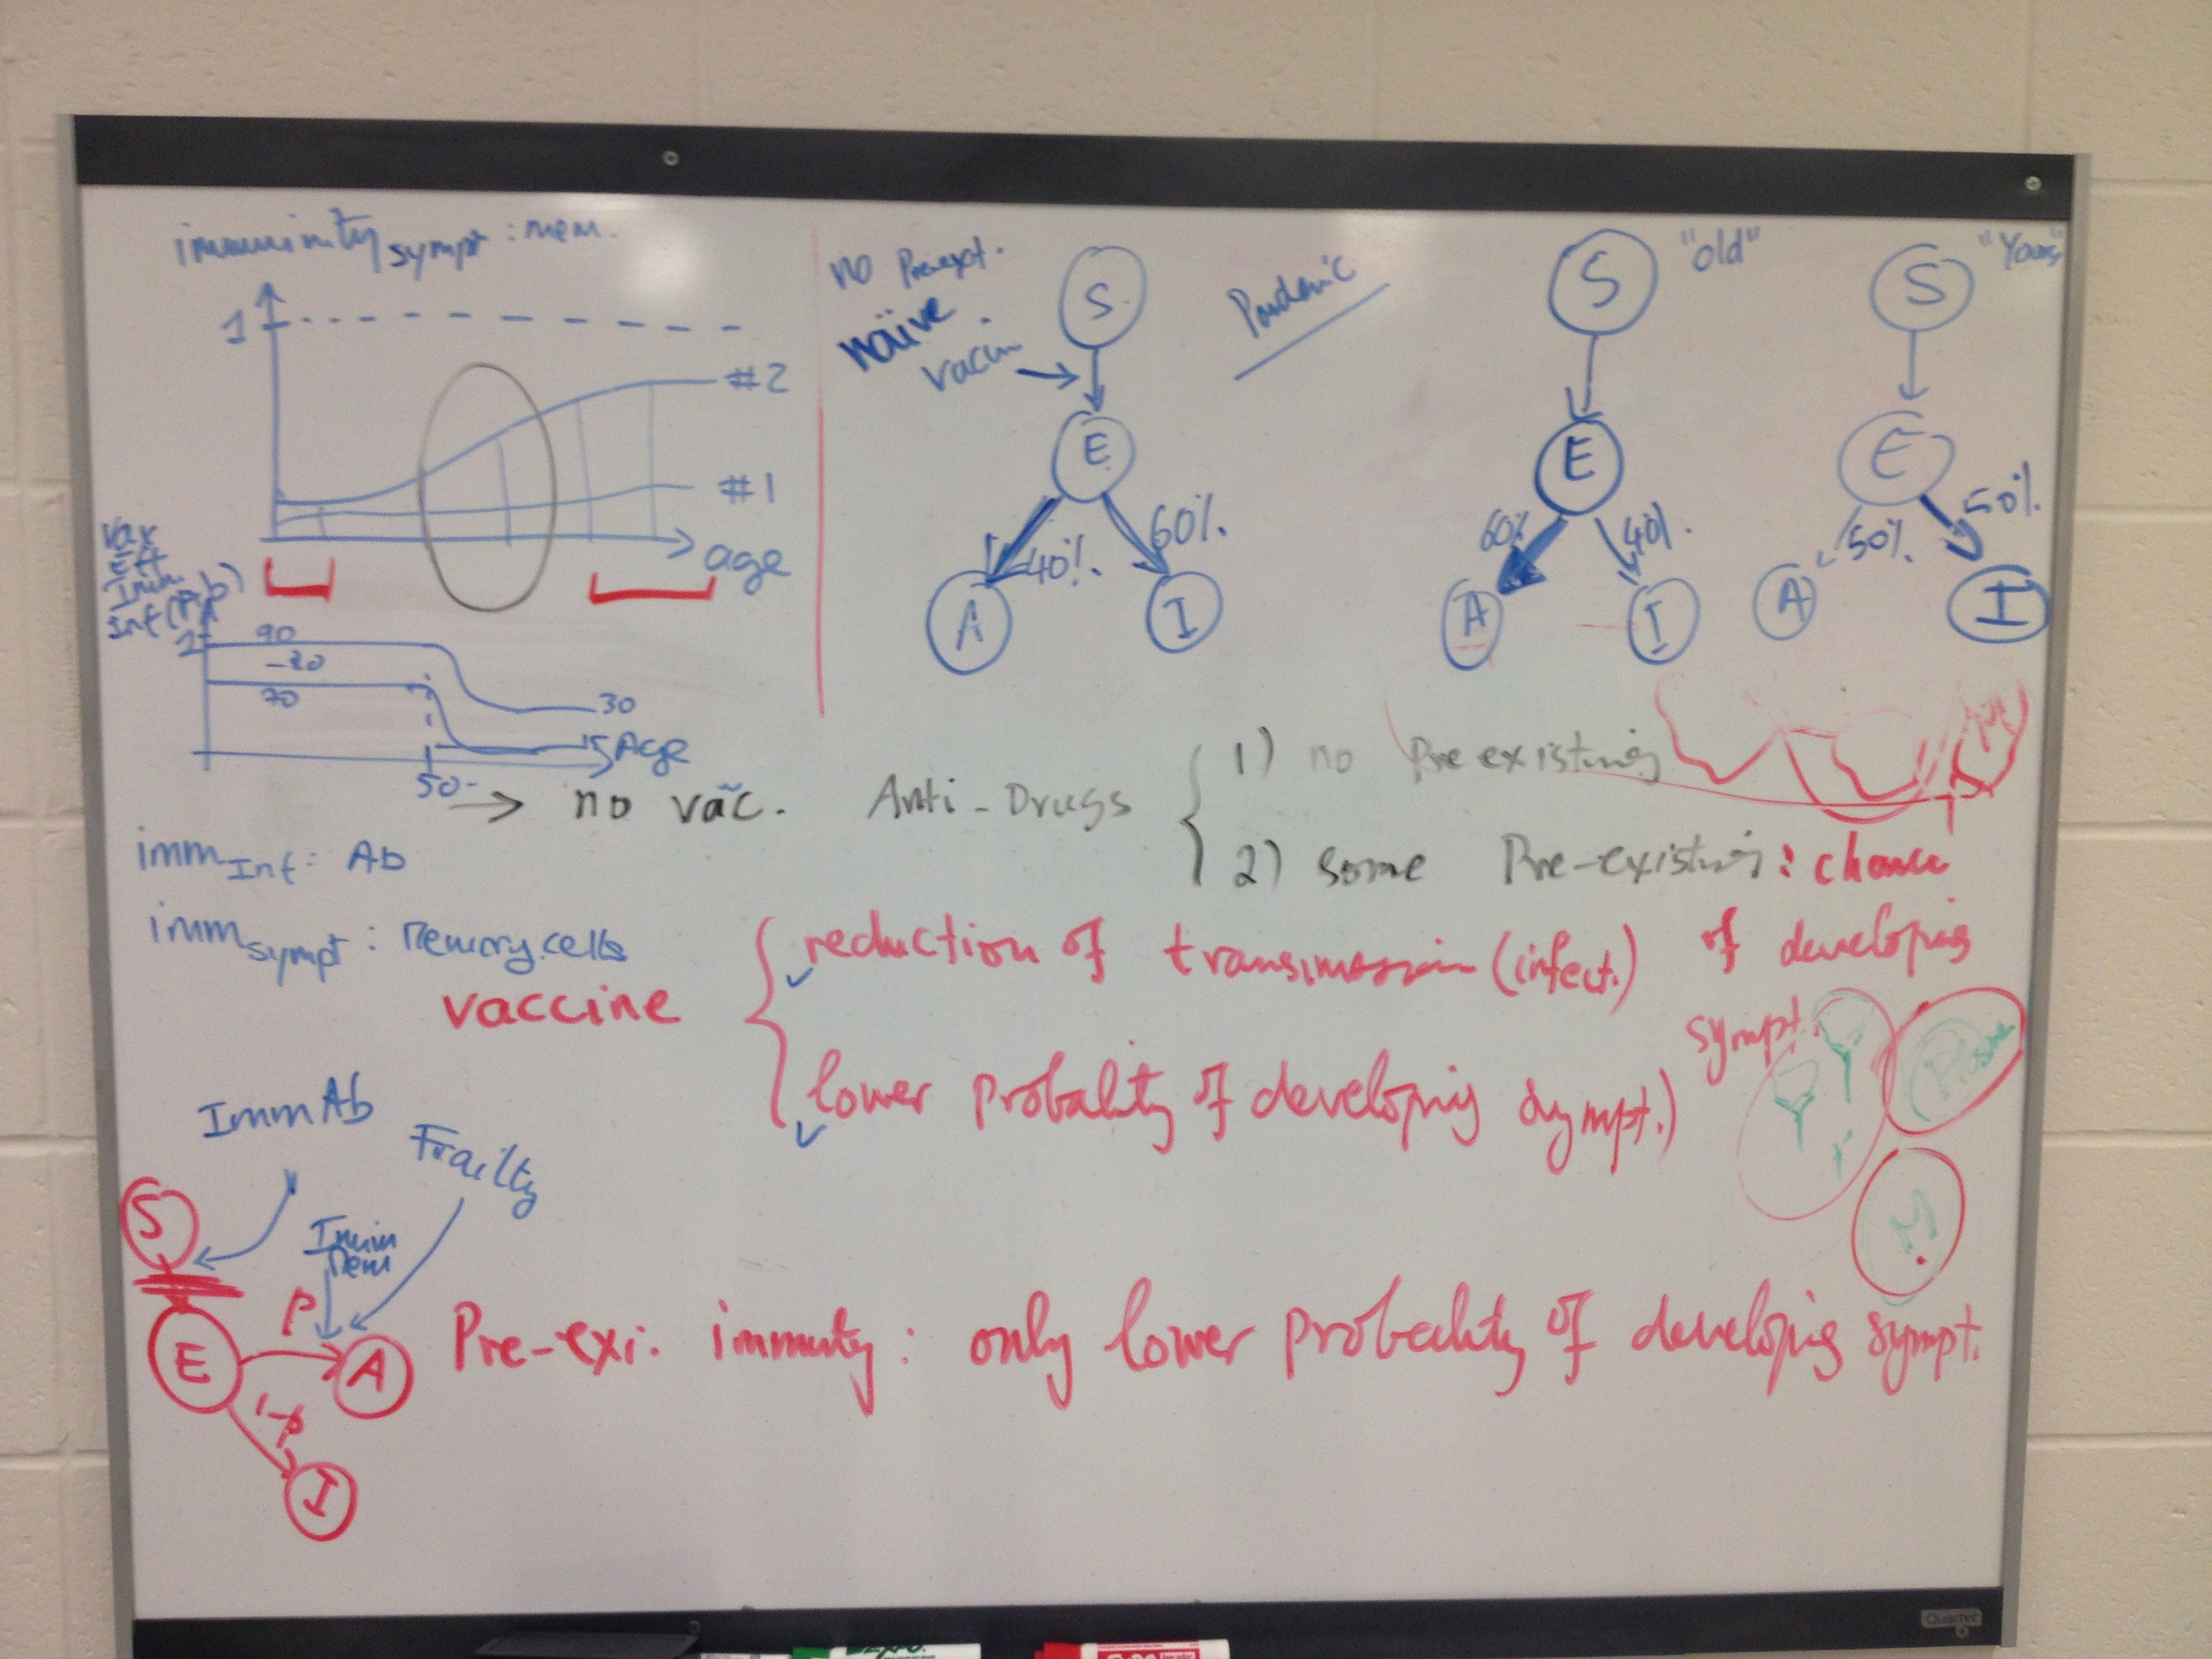 immuninity sympt : mem.
1
#2
#1
age
Vax
Eff
Imm.
Inf
1
90
-20
70
30
15 Age
50-
no Preexpt.
naïve.
vacc
S
E
40%. 60%.
A I
Pandemic
S "old"
E
60% 40%.
A I
S
E
50%. 50%.
A I
→ no vac. Anti-Drugs
1) no Preexisting
2) some Pre-existing: chance
of developing
sympt.
imm Inf: Ab
imm sympt: Memory cells
vaccine
reduction of transmission (infect.)
lower probality of developing sympt.)
M
Plasma
M
Imm Ab
Frailty
Imm
Mem
S
E
P
A
1-p
I
Pre-exi. immuty: only lower probality of developing sympt.
Quartet
EXPO